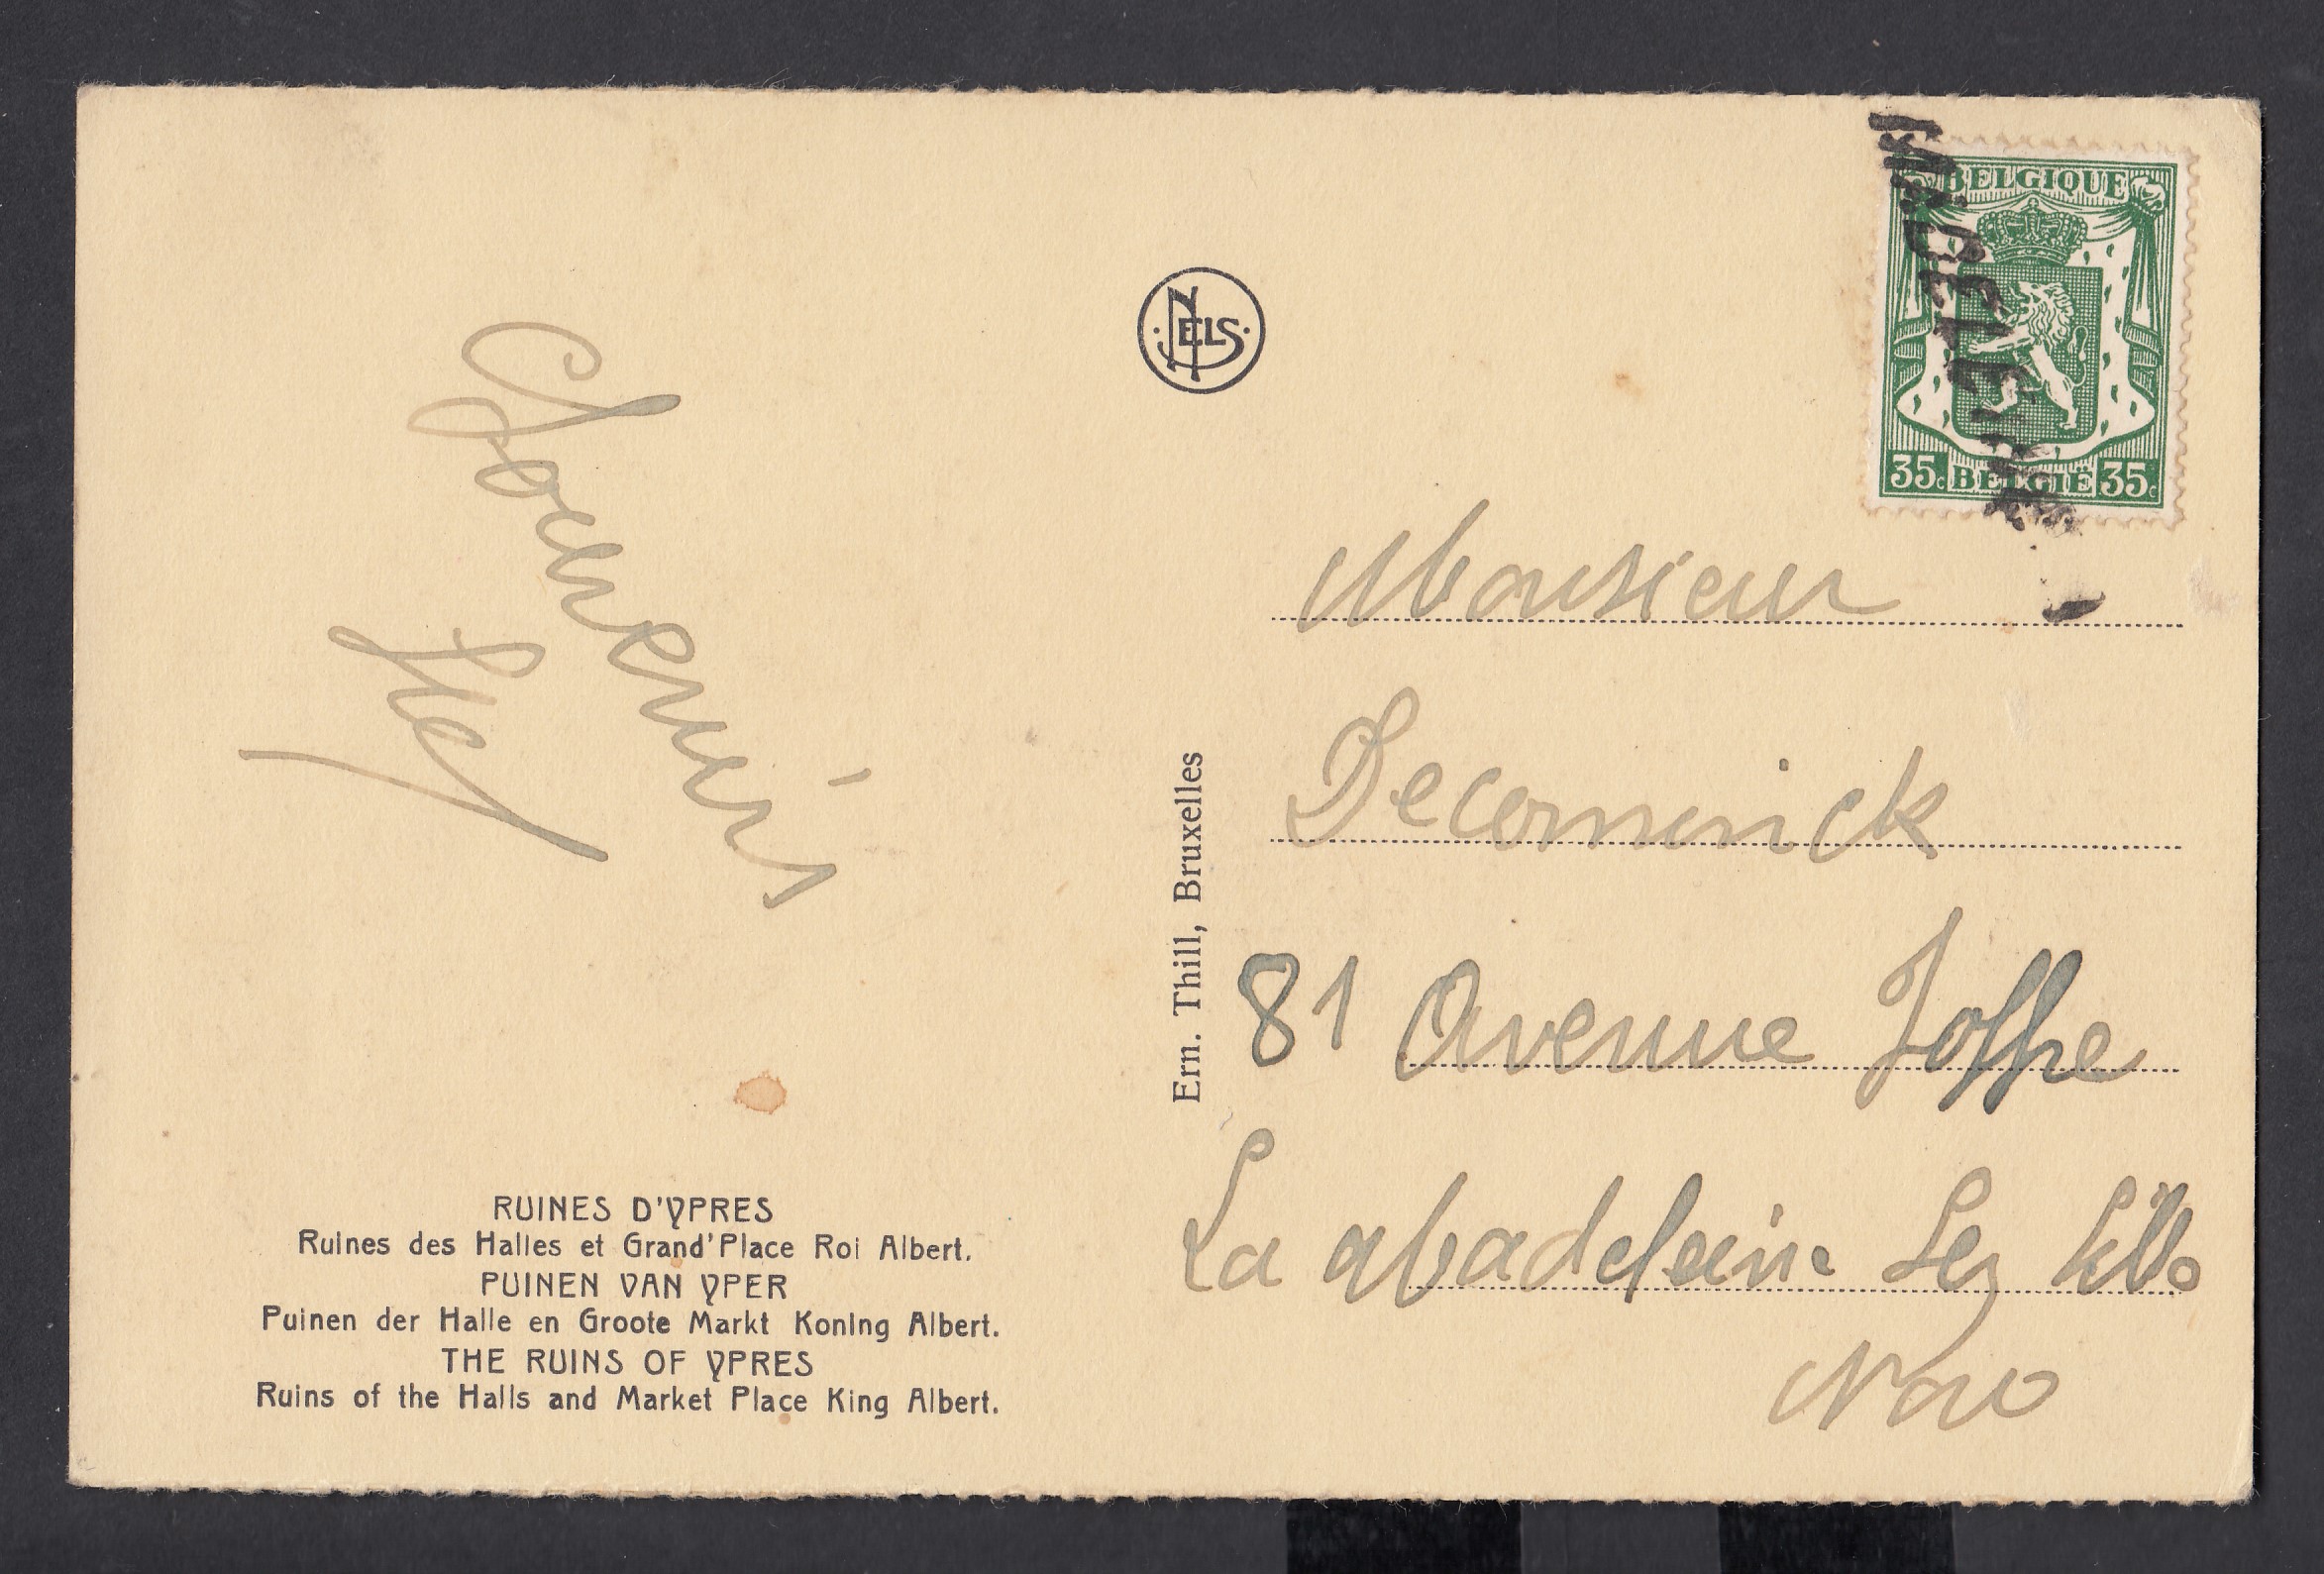 Souvenir
NELS
Ern. Thill, Bruxelles
BELGIQUE
35c BELGIË 35c
Monsieur
Decominick
81 Avenue Joffre
La Madeleine Lez Lille
Nord
RUINES D'YPRES
Ruines des Halles et Grand'Place Roi Albert.
PUINEN VAN YPER
Puinen der Halle en Groote Markt Koning Albert.
THE RUINS OF YPRES
Ruins of the Halls and Market Place King Albert.